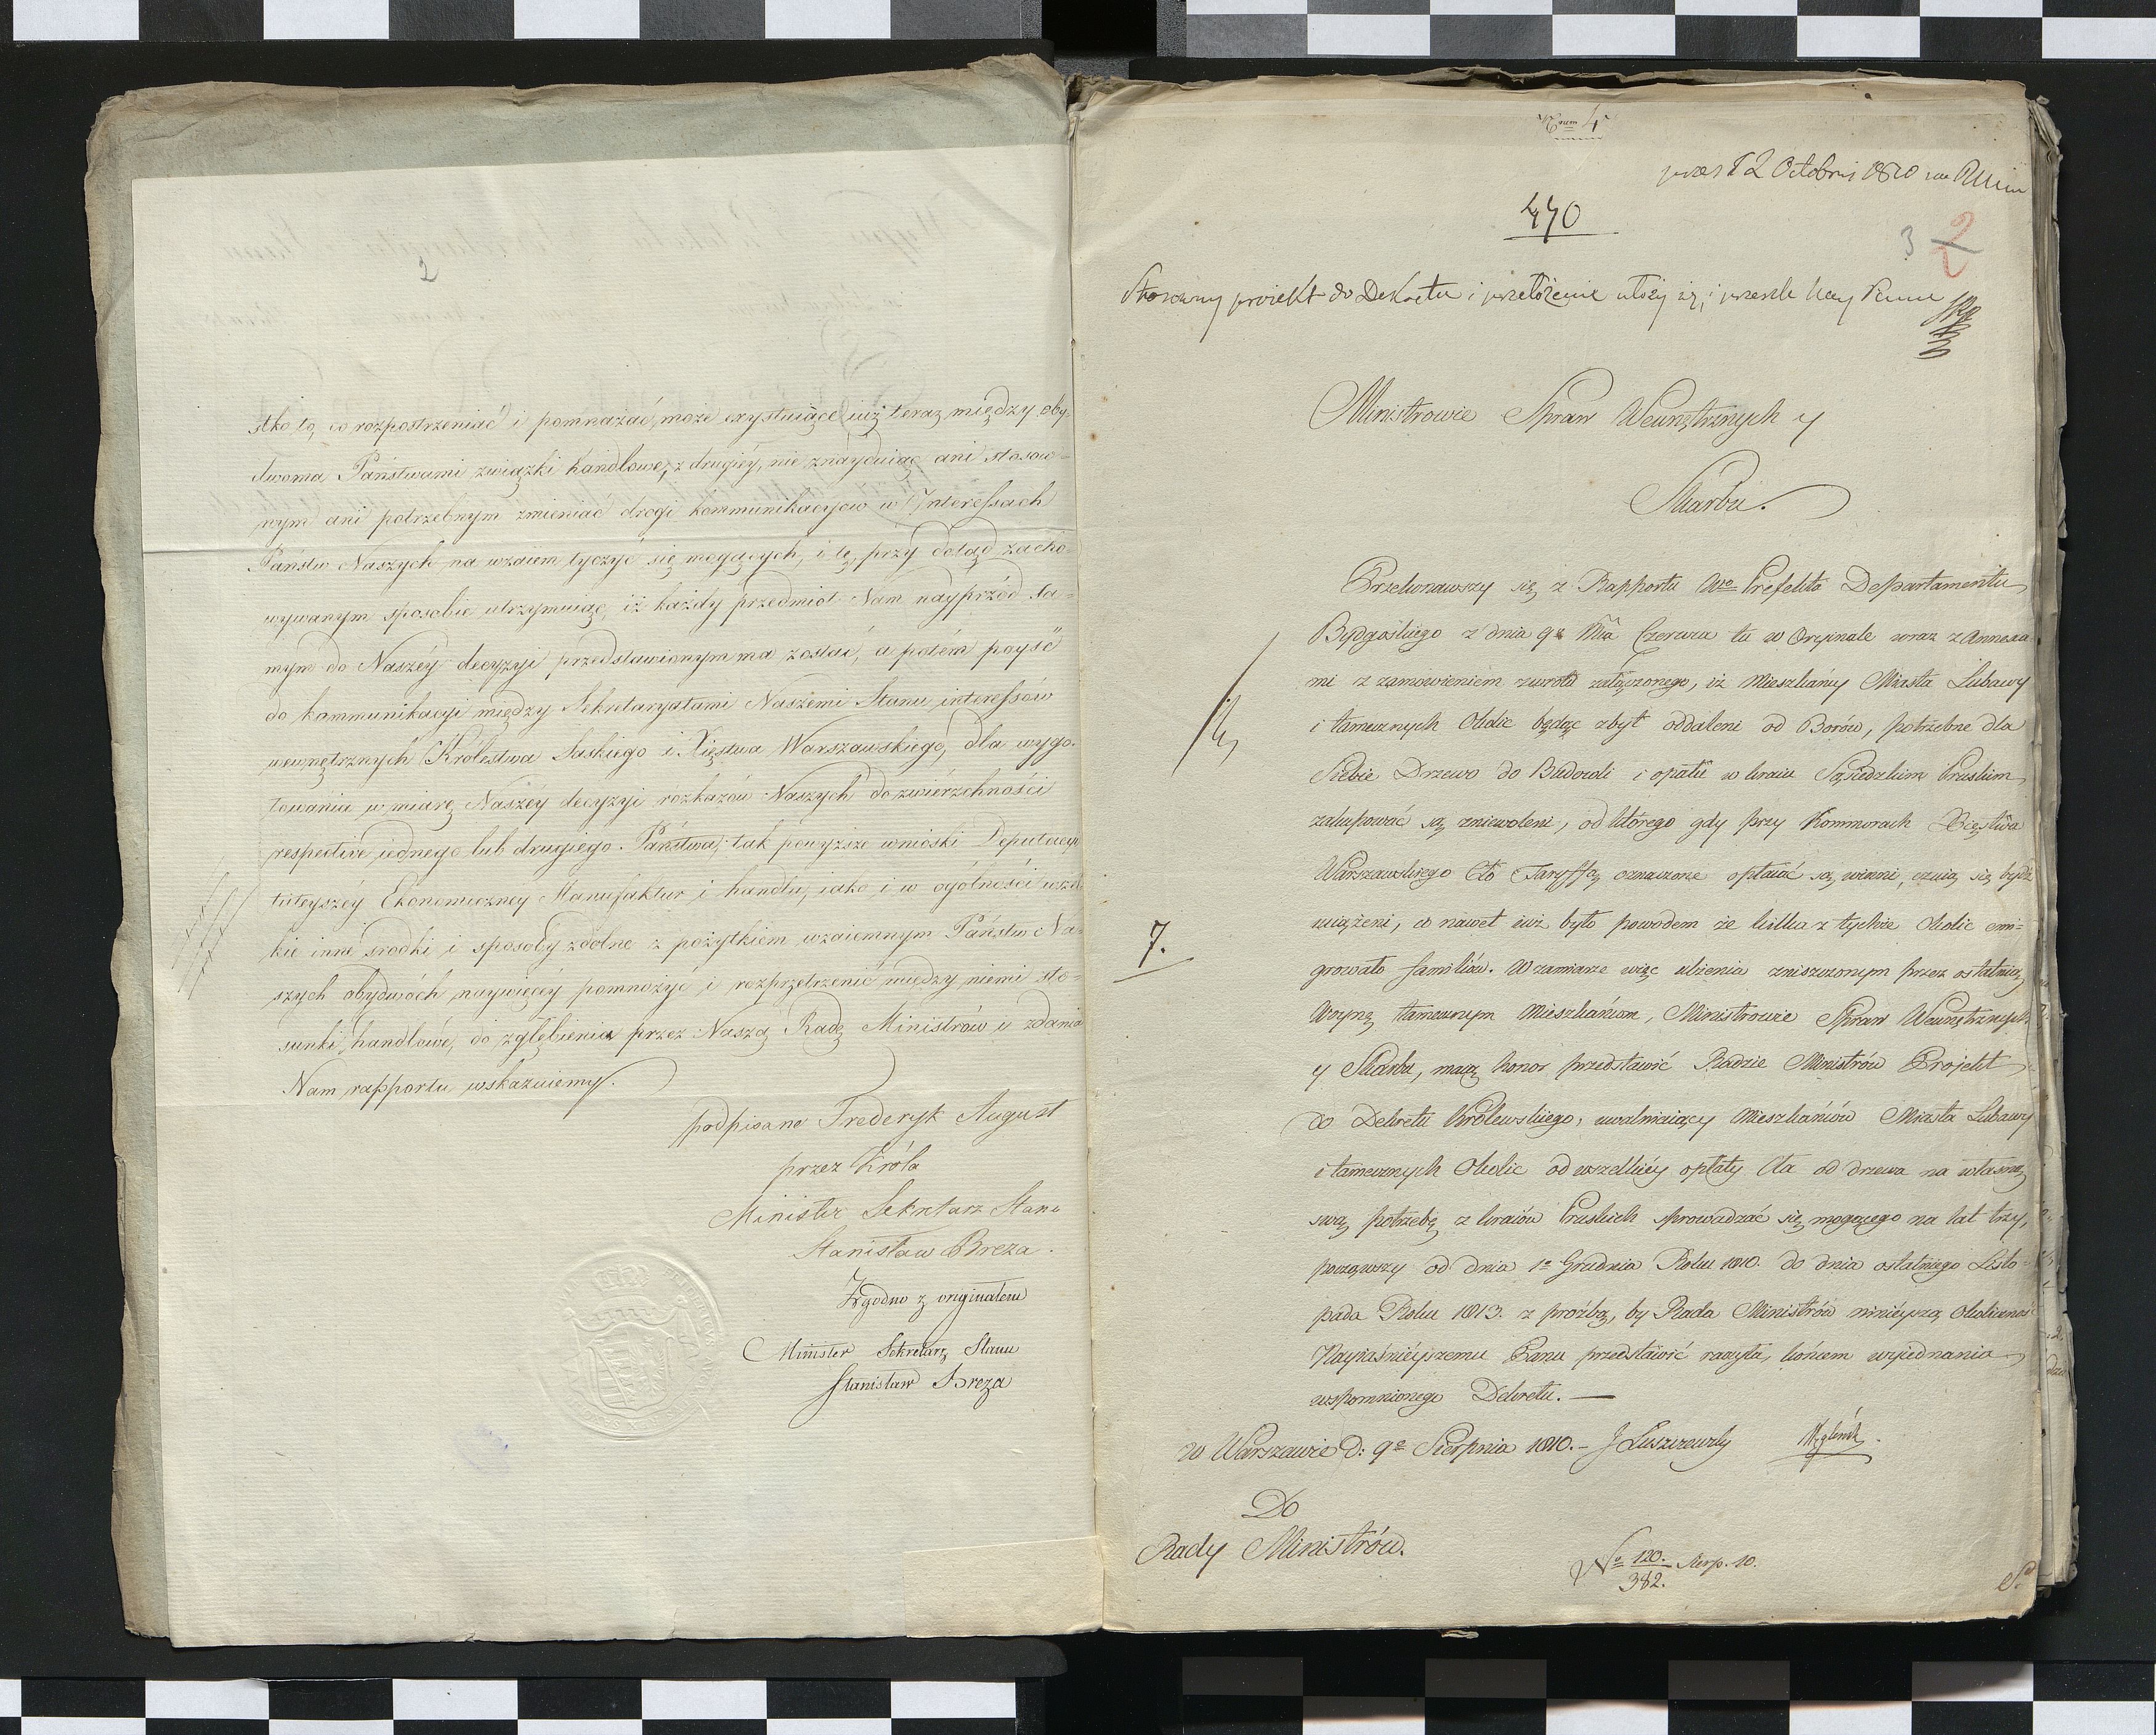 2
stko to, co rozpostrzeniać i pomnażać może exystuiące iuż teraz między oby-
dwoma Państwami związki handlowe, z drugiéy, nie znayduiąc ani stosow-
nym ani potrzebnym zmieniać drogi kommunikacyów w Interessach
Państw Naszych na wzaiem tyczyć się mogących, i tę, przy dotąd zacho-
wywanym sposobie utrzymuiąc, iż każdy przedmiot Nam nayprzód sa-
mym do Naszéy decyzyi przedstawionym ma zostać, a potém poyść
do kommunikacyi między Sekretaryatami Naszemi Stanu interessów
wewnętrznych Królestwa Saskiego i Xięstwa Warszawskiego, dla wygo-
towania w miarę Naszéy decyzyi rozkazów Naszych do zwierzchności
respective iednego lub drugiego Państwa, tak powyższe wnioski Deputacyi
tuteyszéy Ekonomiczney Manufaktur i handlu, iako i w ogólności wszel-
kie inne srodki i sposoby zdolne z pożytkiem wzaiemnym Państw Na-
szych obydwóch naywięcéy pomnożyć i rozprzetrzenić między niemi sto-
sunki handlowe, do zgłębienia przez Naszą Radę Ministrów i zdania
Nam rapportu wskazuiemy.
podpisano Frederyk August
przez Króla
Minister Sekretarz Stanu
Stanisław Breza.
Zgodno z originałem
Minister Sekretarz Stanu
Stanisław Breza
4
12 Octobris 1810
470
3 2
Stosowny proiekt do Dekretu i przełożenie ułoży się, i
Ministrowie Spraw Wewnętrznych y
Skarbu.
Przekonawszy się z Rapportu Prefekta Departamentu
Bydgoskiego z dnia 9º Czerwca tu w Orginale wraz z Annexa-
mi z zamowieniem zwrotu załączonego, iż Mieszkańcy Miasta Lubawy
i tamecznych Okolic będąc zbyt oddaleni od Borów, potrzebne dla
Siebie Drzewo do Budowli i opału w kraiu Sąsiedzkim Pruskim
zakupować są zniewoleni, od którego gdy przy Kommorach Xięstwa
Warszawskiego Cło Taryffą oznaczone opłacać są winni, czuią się bydź
uciążeni, co nawet iuż było powodem że kilka z tychże Okolic emi-
growało familiów. W zamiarze więc ulżenia zniszczonym przez ostatnią
7.
Woynę tamecznym Mieszkańcom, Ministrowie Spraw Wewnętrznych
y Skarbu, maią honor przedstawić Radzie Ministrów Projekt
do Dekretu Królewskiego, uwalniaiący Mieszkańców Miasta Lubawy
i tamecznych Okolic od wszelkiéy opłaty Cła od drzewa na własną
swą potrzebę z kraiów Pruskich sprowadzać się mogącego na lat trzy,
począwszy od dnia 1º Grudnia Roku 1810. do dnia ostatniego Listo-
pada Roku 1813. z proźbą, by Rada Ministrów ninieyszą Okoliczność
Nayiaśnieyszemu Panu przedstawić raczyła, końcem wyjednania
wspomnionego Dekretu. —
w Warszawie d: 9º Sierpnia 1810. – J Łuszczewski Węgleński.
Do
Rady Ministrów.
Nº 120./382. Sierp. 10.